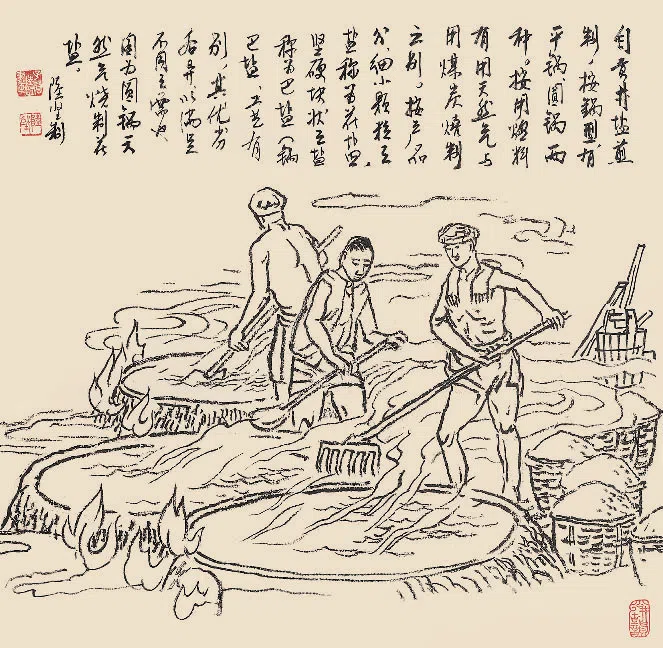 自贡井盐煎
制，按锅型有
平锅、圆锅两
种。按用燃料
有用天然气与
用煤炭烧制
之别。按产品
分，细小颗粒之
盐称为花盐，
坚硬块状之盐
称为巴盐（锅
巴盐，工艺有
别，其优劣
各异以满足
不同之需也
图为圆锅天
然气烧制花
盐。